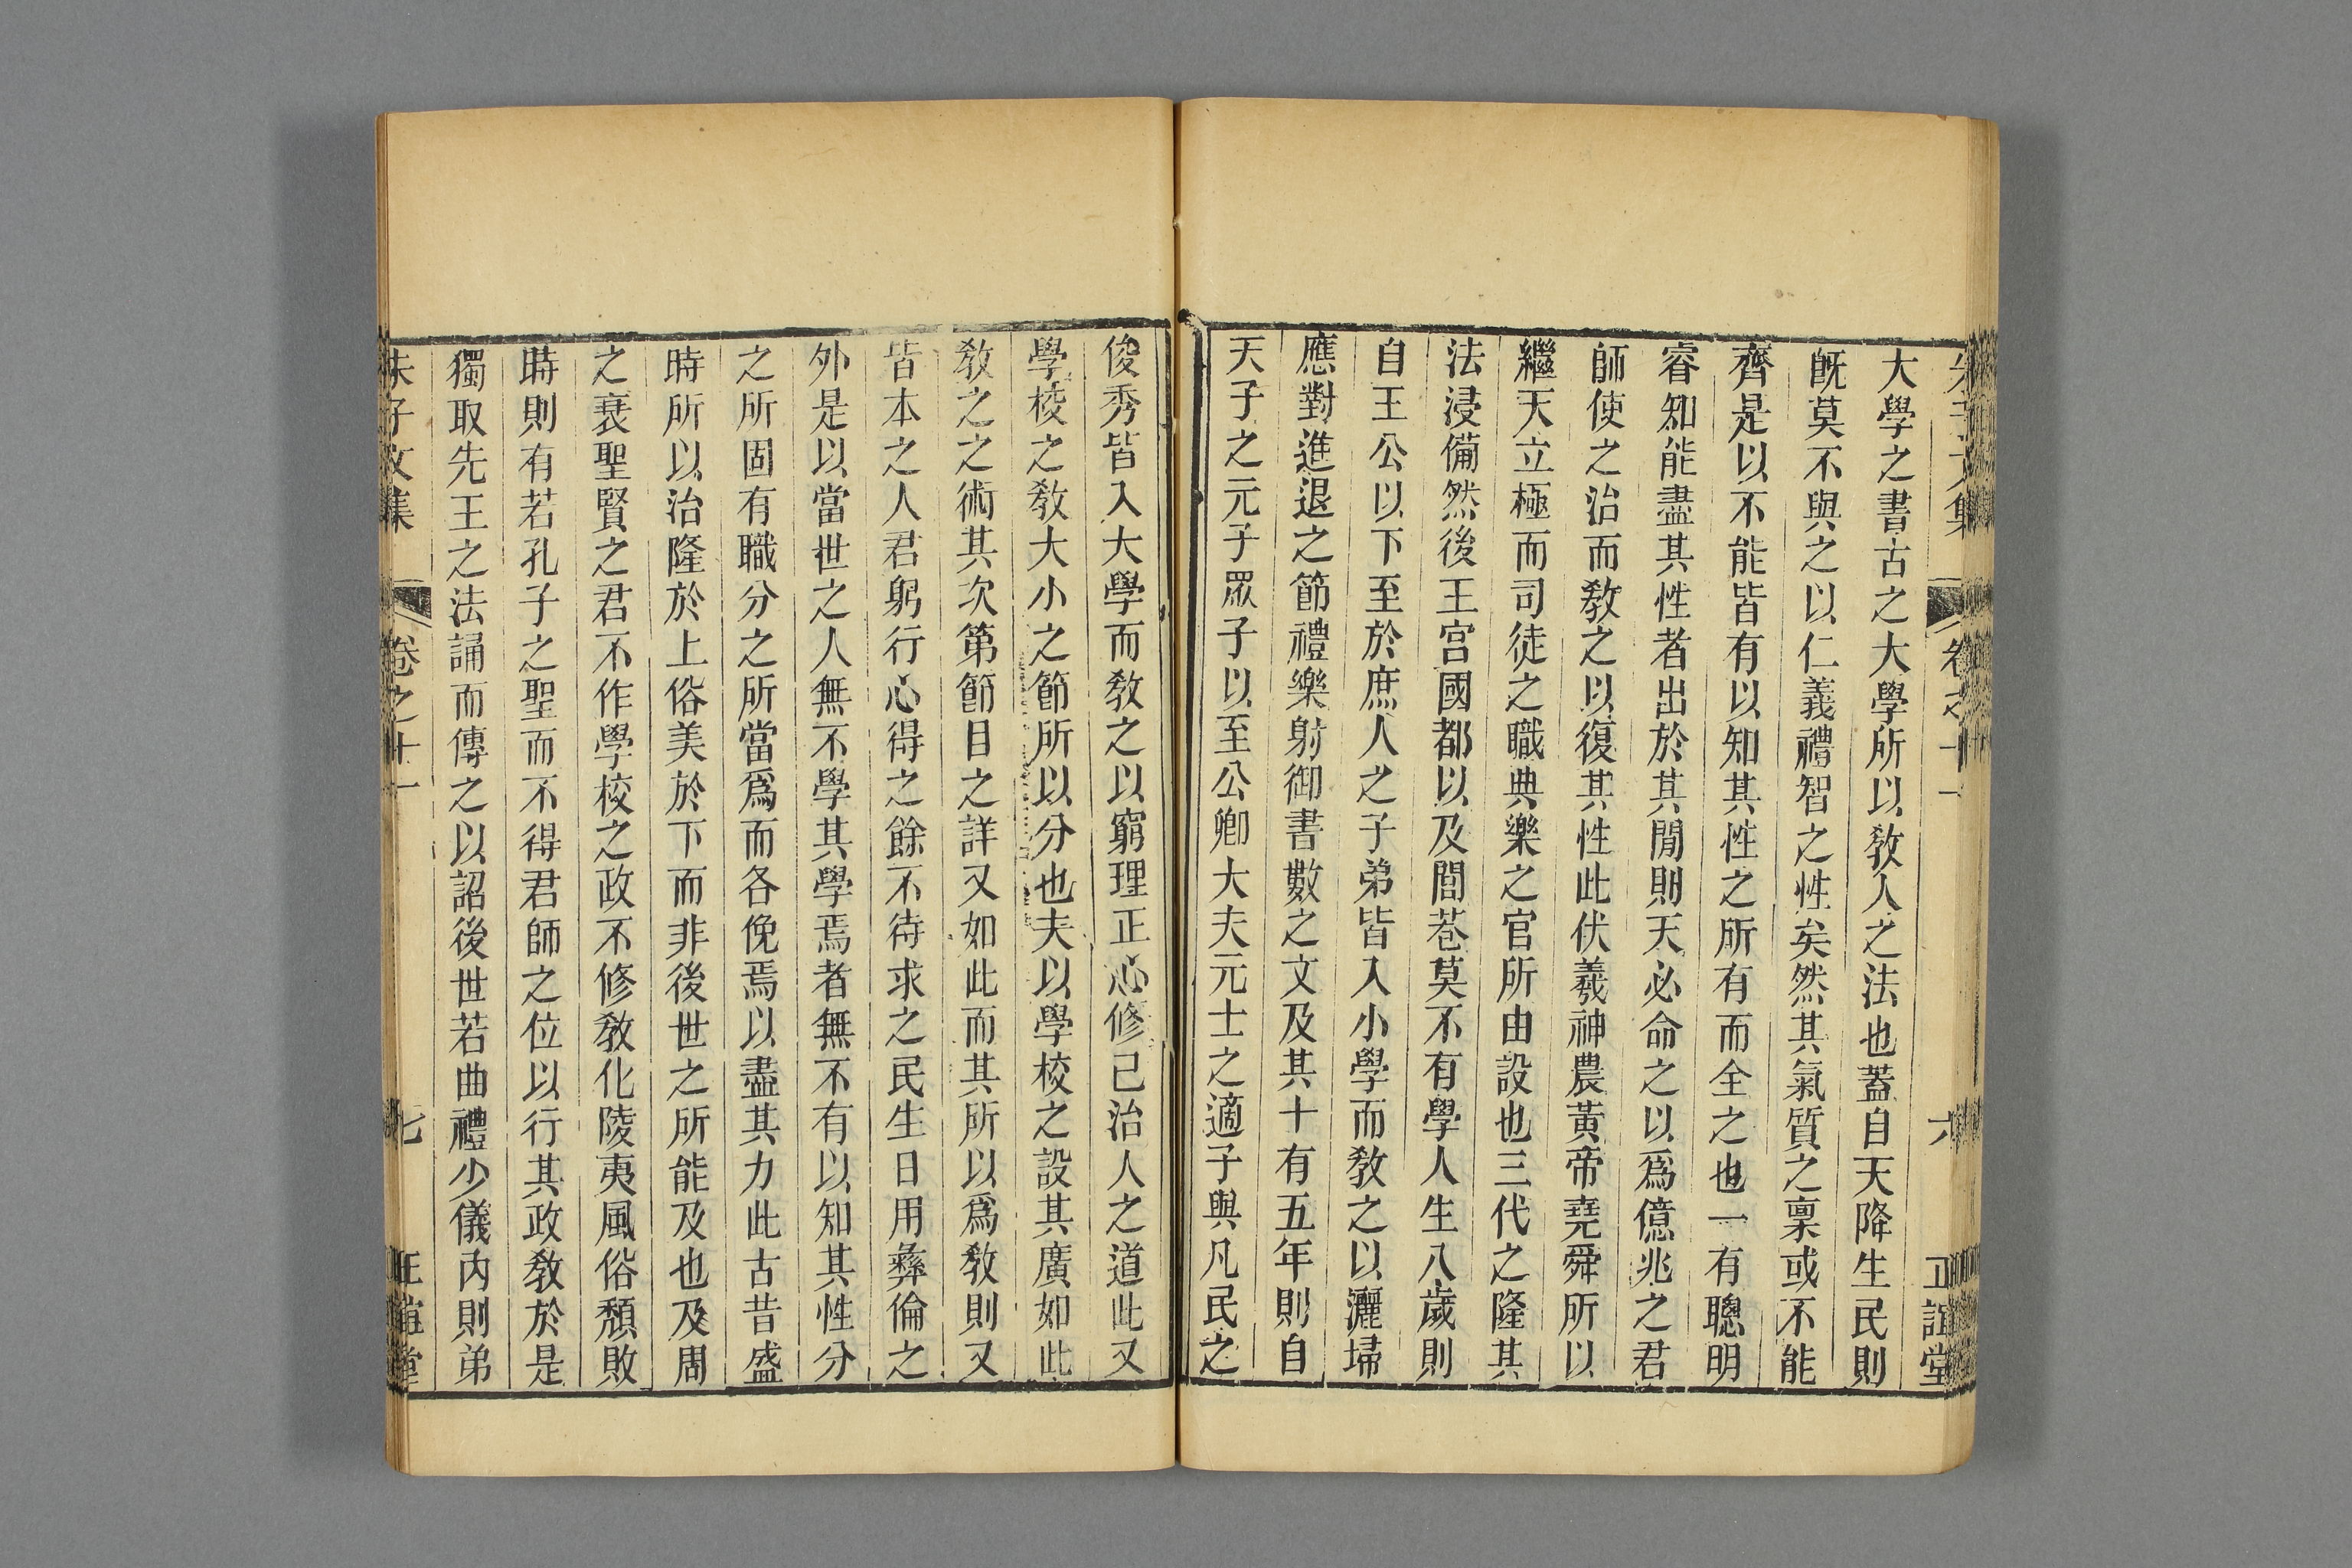 朱子文集 卷之十一 六 正誼堂
大學之書古之大學所以敎人之法也蓋自天降生民則
旣莫不與之以仁義禮智之性矣然其氣質之稟或不能
齊是以不能皆有以知其性之所有而全之也一有聰明
睿知能盡其性者出於其閒則天必命之以爲億兆之君
師使之治而敎之以復其性此伏羲神農黃帝堯舜所以
繼天立極而司徒之職典樂之官所由設也三代之隆其
法浸備然後王宮國都以及閭巷莫不有學人生八歲則
自王公以下至於庶人之子弟皆入小學而敎之以灑埽
應對進退之節禮樂射御書數之文及其十有五年則自
天子之元子眾子以至公卿大夫元士之適子與凡民之
俊秀皆入大學而敎之以窮理正心修己治人之道此又
學校之敎大小之節所以分也夫以學校之設其廣如此
敎之之術其次第節目之詳又如此而其所以爲敎則又
皆本之人君躬行心得之餘不待求之民生日用彝倫之
外是以當世之人無不學其學焉者無不有以知其性分
之所固有職分之所當爲而各俛焉以盡其力此古昔盛
時所以治隆於上俗美於下而非後世之所能及也及周
之衰聖賢之君不作學校之政不修敎化陵夷風俗頹敗
時則有若孔子之聖而不得君師之位以行其政敎於是
獨取先王之法誦而傳之以詔後世若曲禮少儀內則弟
朱子文集 卷之十一 七 正誼堂